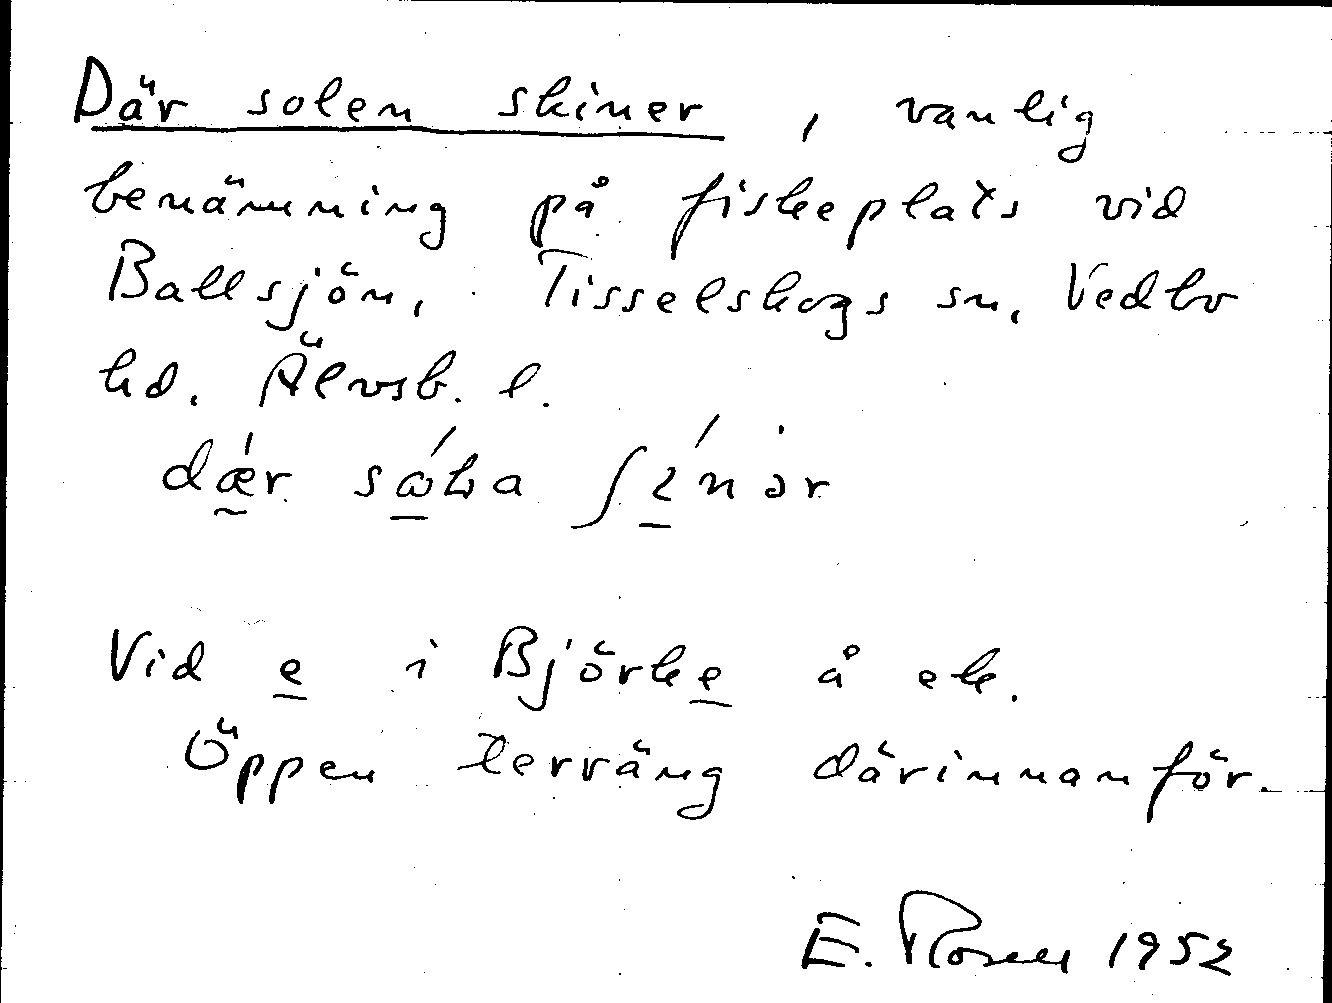 Där solen skiner, vanlig
benämning på fiskeplats vid
Ballsjön, Tisselskogs sn, Vedbo
hd. Älvsb. l.
dǽr sǿ
Vid e i Björke å ek.
Öppen terräng därinnanför.
E. Rosell 1952